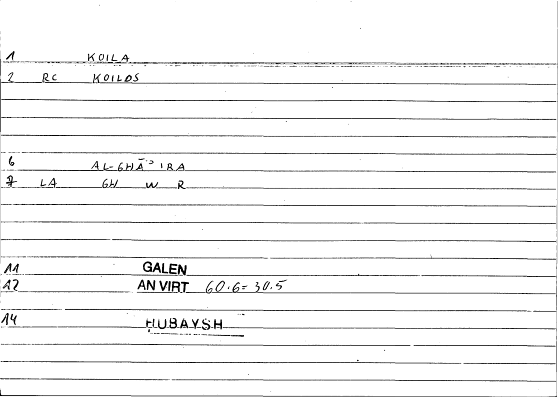 1 KOILA
2 RC KOILOS
6 AL-GHĀʾIRA
7 LA GH W R
11 GALEN
12 AN VIRT 60.6 = 30.5
14 ḤUBAYSH